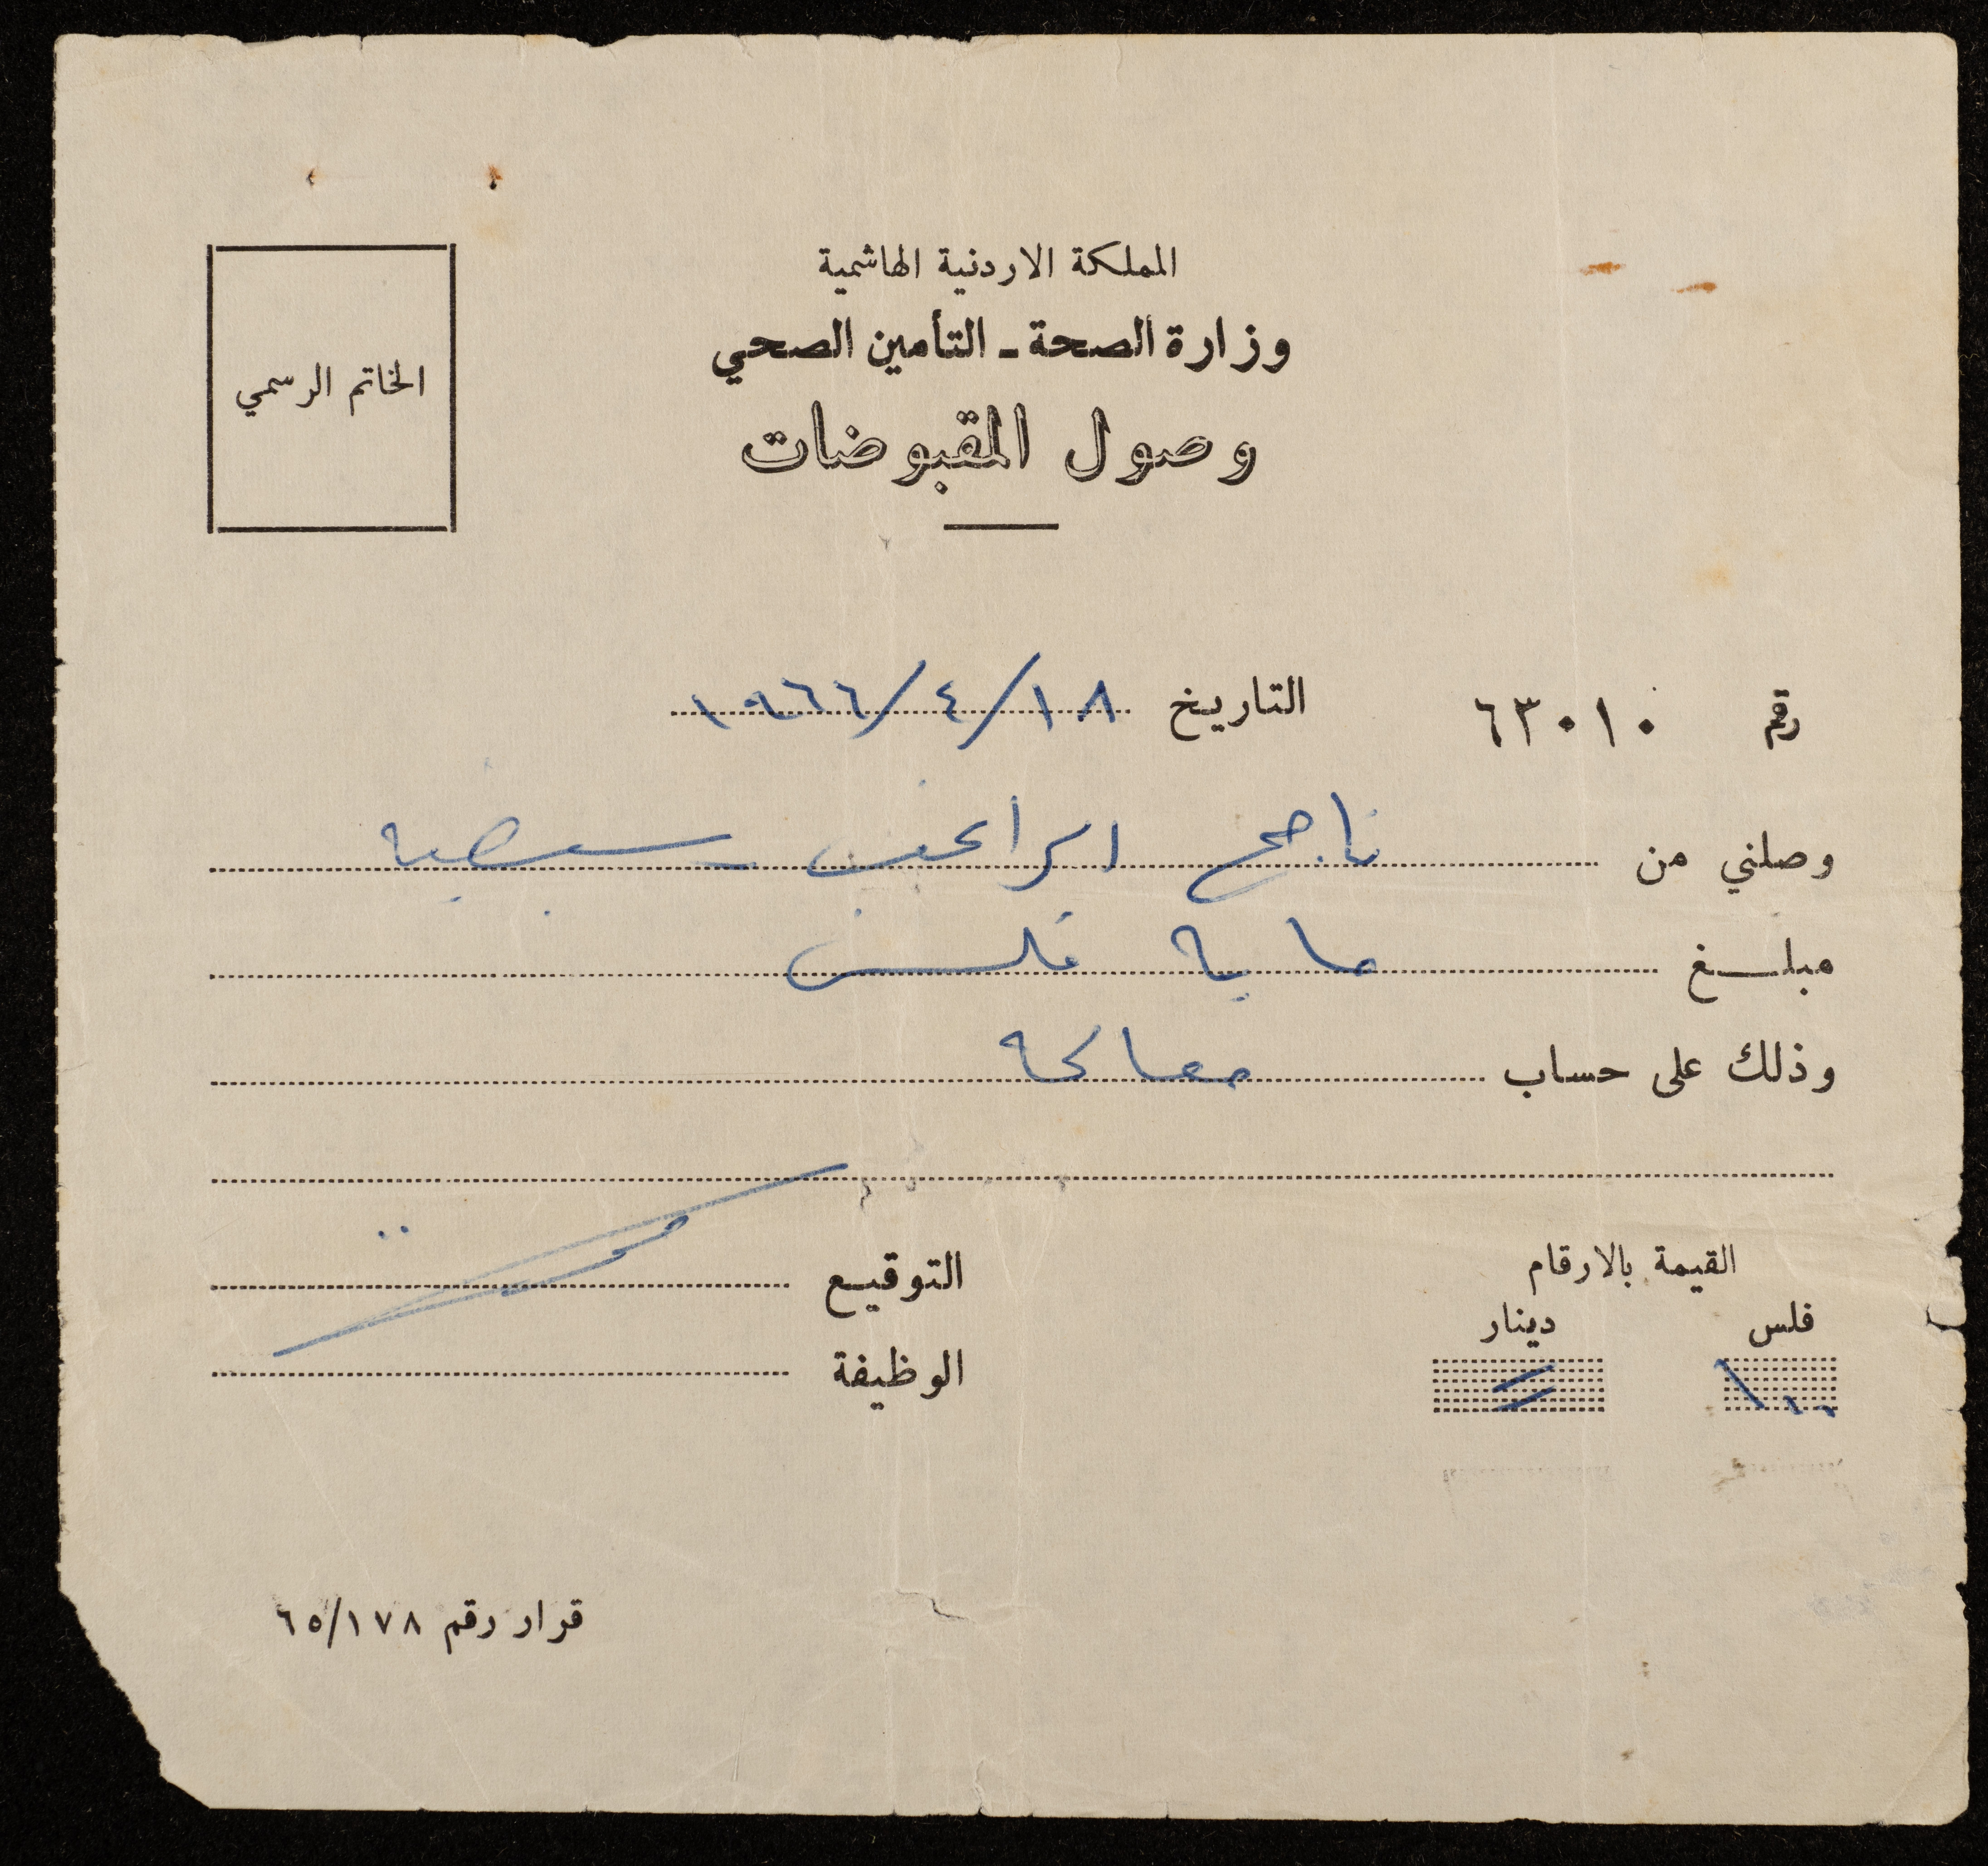 المملكة الاردنية الهاشمية
وزارة الصحة ـ التأمين الصحي
وصول المقبوضات
الخاتم الرسمي
رقم ٦٣٠١٠ التاريخ ١٨/٤/١٩٦٦
وصلني من ناجح
مبلغ ماية فلس
وذلك على حساب معالجة
القيمة بالارقام
فلس دينار
١٠٠
التوقيع
الوظيفة
قرار رقم ٦٥/١٧٨